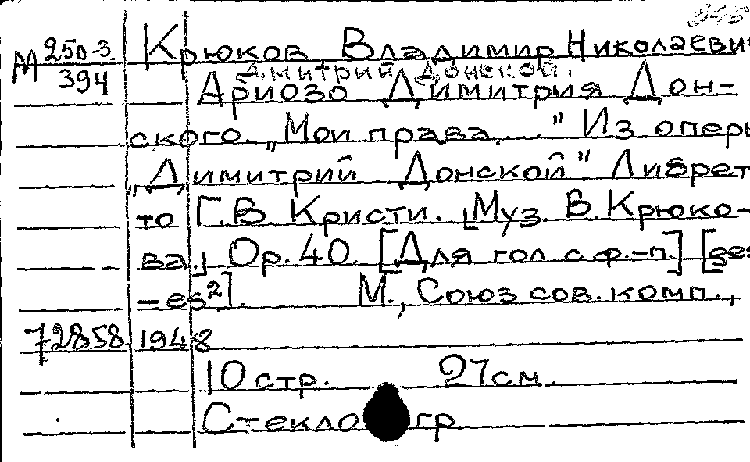 М 250-3
394
Крюков Владимир Николаеви
Дмитрий Донской.
Ариозо Димитрия Дон-
ского „Мои права..." Из оперы
„Димитрий Донской" Либрет-
то Г.В. Кристи. [Муз. В. Крюко-
ва.] Ор. 40. [Для гол. с ф.-п.] [ges
-es²]. М., Союз сов. комп.,
72858 1948
10 стр. 27 см.
Стекло гр